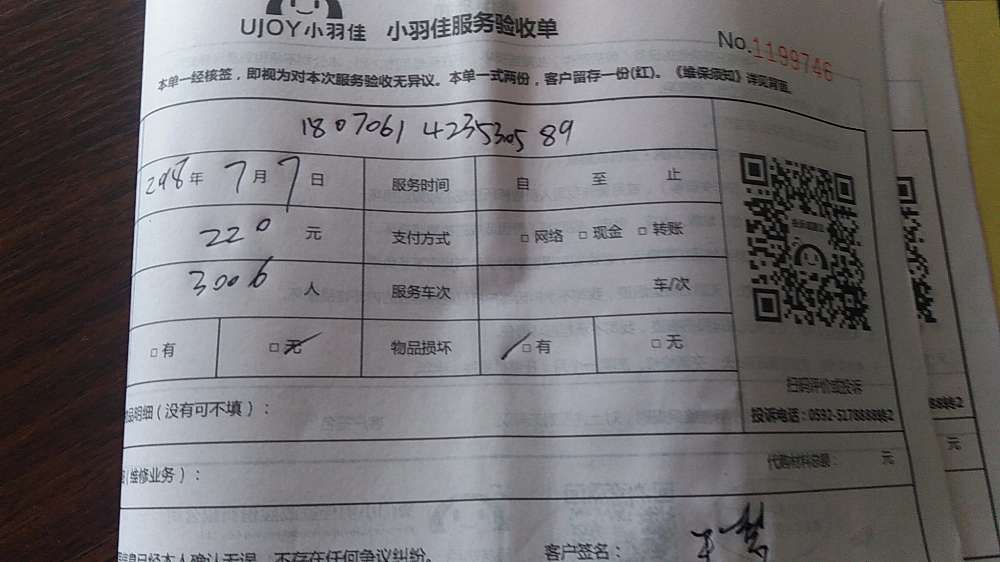 UJOY小羽佳 小羽佳服务验收单
No.1199746
本单一经核签，即视为对本次服务验收无异议。本单一式两份，客户留存一份(红)。《维保须知》详见背面。
1807061423530589
年 7月7日 服务时间 自 至 止
220 元 支付方式 □网络 □现金 □转账
3006 人 服务车次 车/次
□有 □无 物品损坏 □有 □无
扫码评价或投诉
品明细（没有可不填）：
投诉电话：0592-5178888
代购材料总额： 元
(维修业务）：
元
已经本人确认无误，不存在任何争议纠纷。 客户签名：